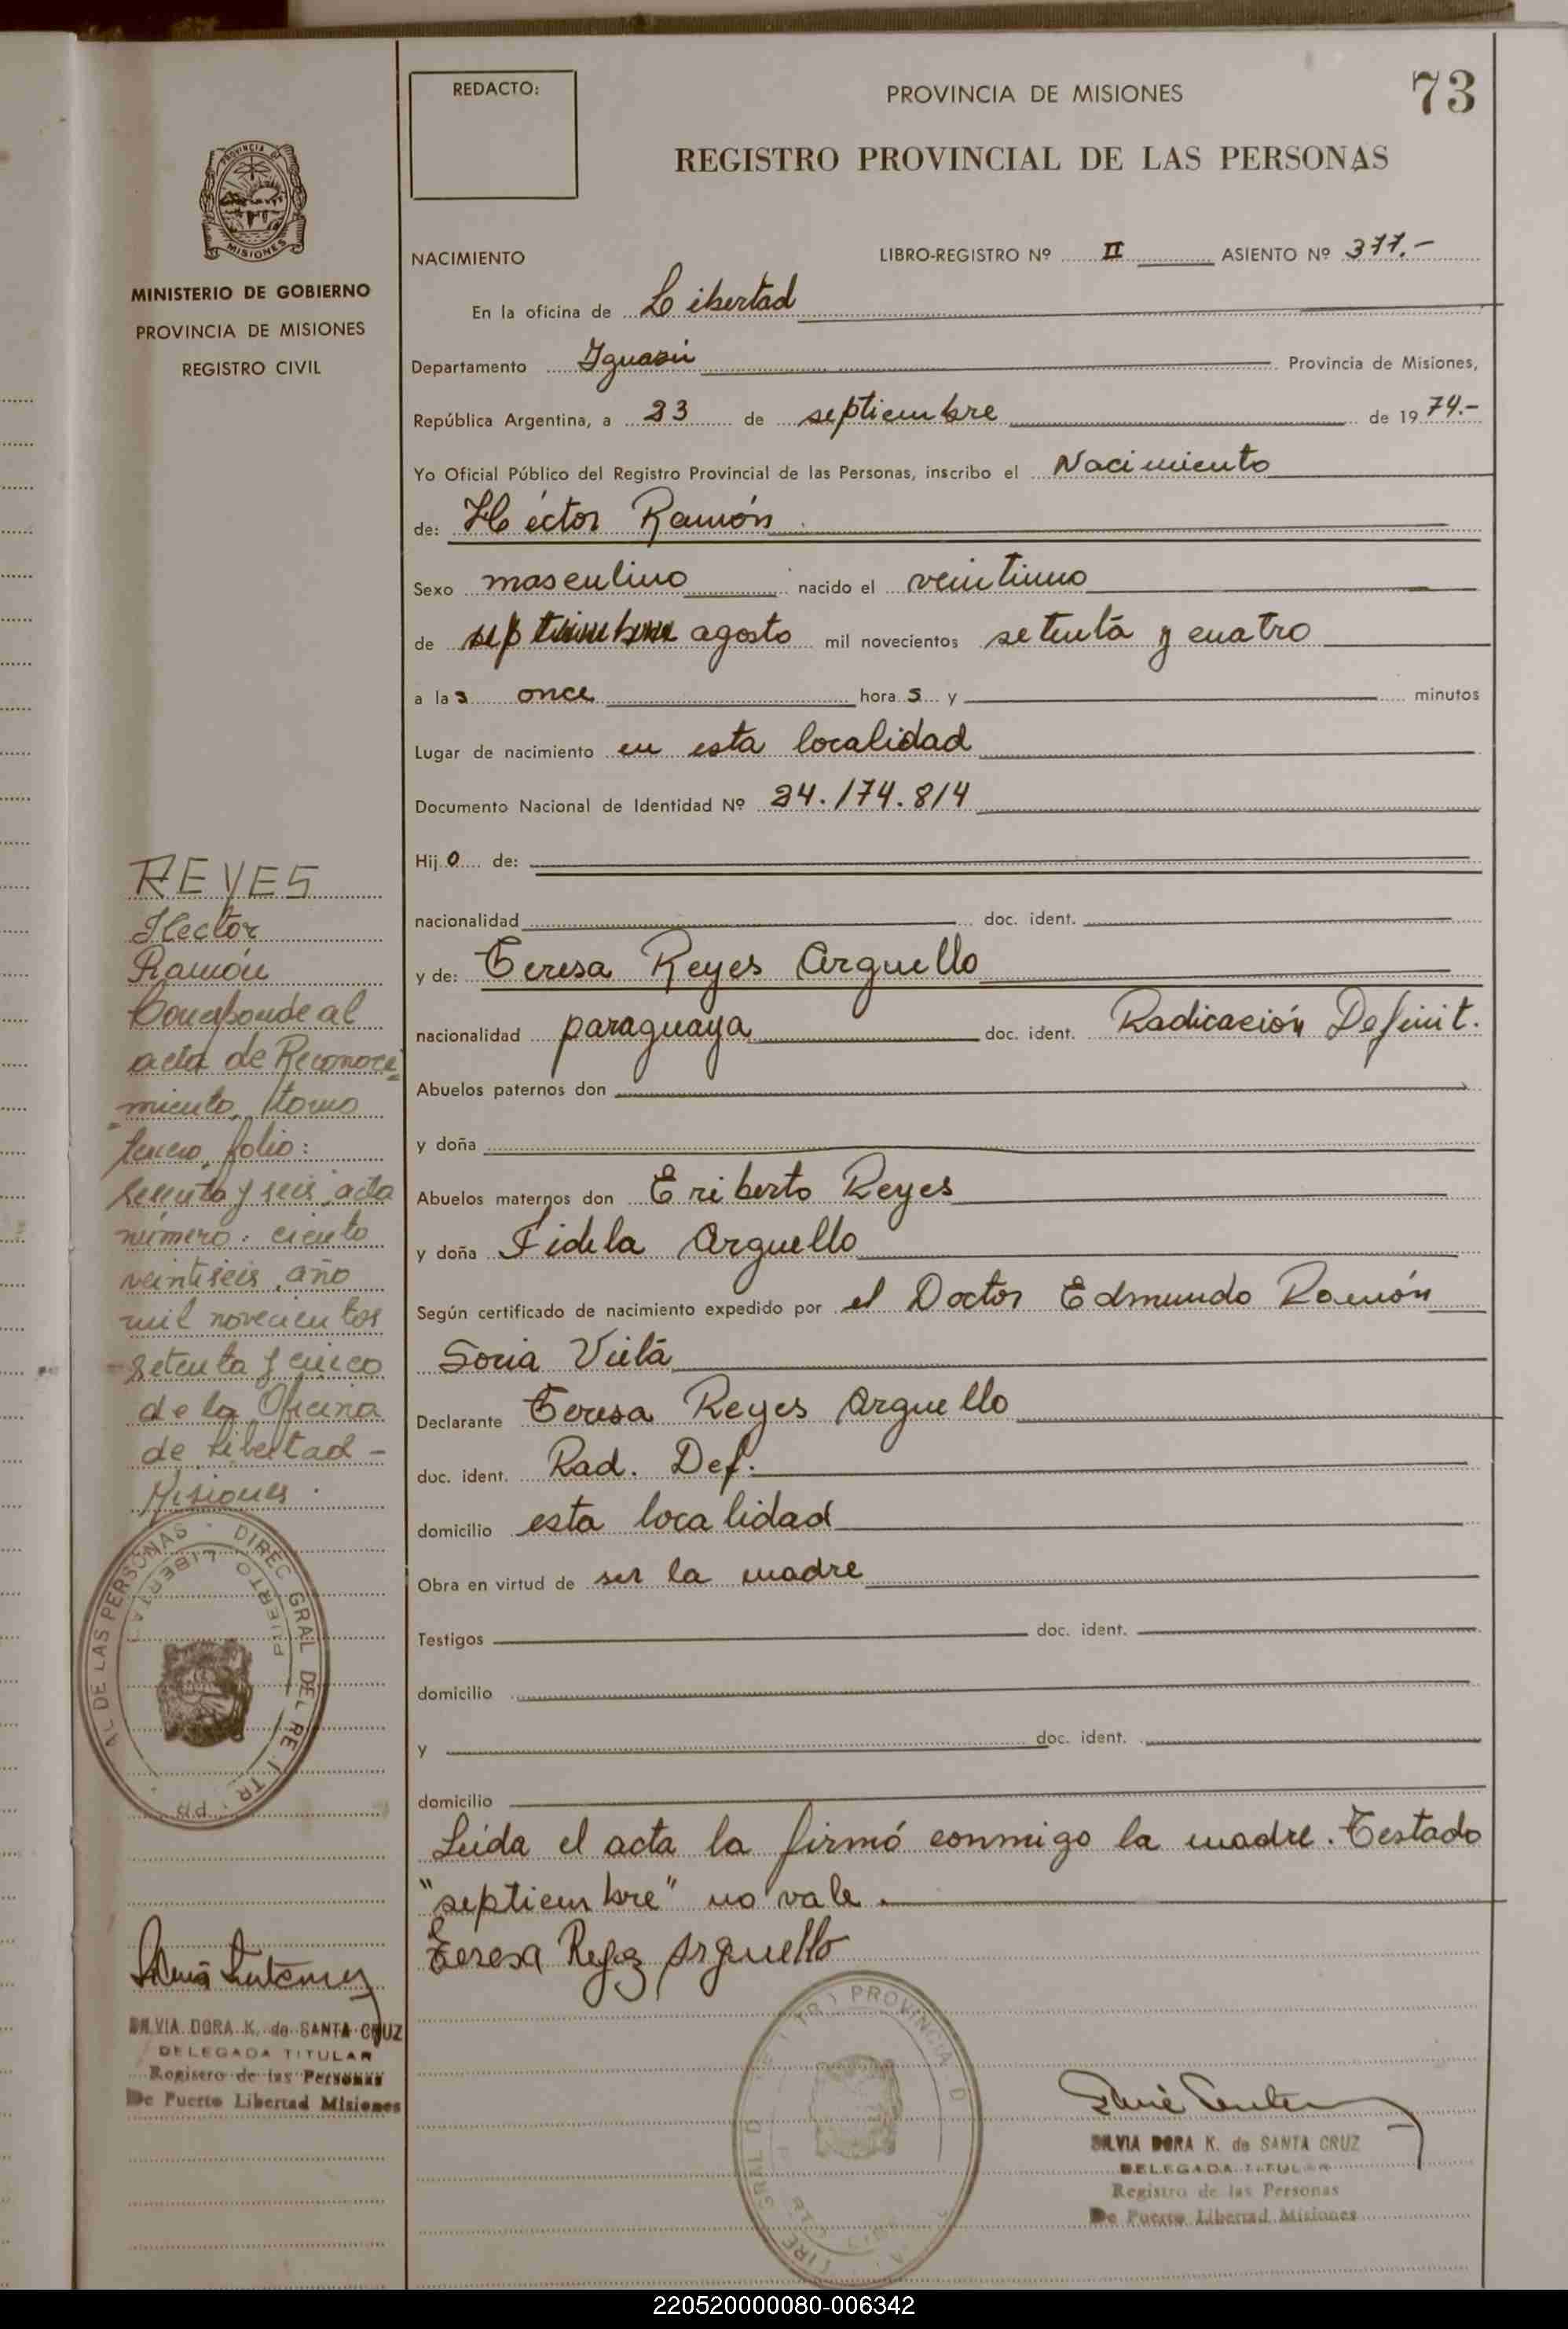 REDACTO:
PROVINCIA DE MISIONES
73
REGISTRO PROVINCIAL DE LAS PERSONAS
PROVINCIA DE
MISIONES
MINISTERIO DE GOBIERNO
PROVINCIA DE MISIONES
REGISTRO CIVIL
NACIMIENTO
LIBRO-REGISTRO Nº II ASIENTO Nº 377.-
En la oficina de Libertad
Departamento Iguazú Provincia de Misiones,
República Argentina, a 23 de septiembre de 1974.-
Yo Oficial Público del Registro Provincial de las Personas, inscribo el Nacimiento
de: Héctor Ramón
Sexo masculino nacido el veintiuno
de septiembre agosto mil novecientos setenta y cuatro
a las once horas y minutos
Lugar de nacimiento en esta localidad
Documento Nacional de Identidad Nº 24.174.814
Hijo de:
nacionalidad doc. ident.
y de: Teresa Reyes Arguello
nacionalidad paraguaya doc. ident. Radicación Definit.
Abuelos paternos don
y doña
Abuelos maternos don Eriberto Reyes
y doña Fidela Arguello
Según certificado de nacimiento expedido por el Doctor Edmundo Ramón
Soria Vieta
Declarante Teresa Reyes Arguello
doc. ident. Rad. Def.
domicilio esta localidad
Obra en virtud de ser la madre
Testigos doc. ident.
domicilio
y doc. ident.
domicilio
Leída el acta la firmó conmigo la madre. Testado
"septiembre" no vale.
Teresa Reyez Arguello
SILVIA DORA K. de SANTA CRUZ
DELEGADA TITULAR
Registro de las Personas
De Puerto Libertad Misiones
REYES
Hector
Ramón
Corresponde al
acta de Reconoci
miento, tomo
tercero, folio:
sesenta y seis, acta
número: ciento
veintiseis, año
mil novecientos
setenta y cinco
de la Oficina
de Libertad -
Misiones.
AL DE LAS PERSONAS · DIREC GRAL DEL RE
PUERTO LIBERTA
SILVIA DORA K. de SANTA CRUZ
DELEGADA TITULAR
Registro de las Personas
De Puerto Libertad Misiones
220520000080-006342